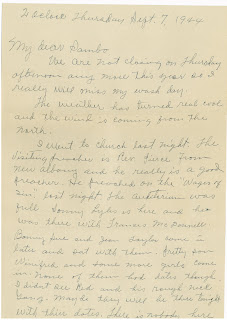 2 o'clock Thursday Sept. 7, 1944
My dear Sambo
We are not closing on Thursday
afternoon any more this year so I
really will miss my wash day.
The weather has turned real cool
and the wind is coming from the
North.
I went to church last night. The
Visiting preacher is Rev. Pierce from
New Albany and he really is a good
preacher. He preached on the "Wages of
Sin" last night. The auditorium was
full. Sonny is here and he
was there with Frances McDonnell
and Jean came in
later and sat with them.
Winifred and some more girls came
in. None of them had dates though.
I didn't see Red and his rough neck
Gang. Maybe they will be there tonight
with their dates. There is nobody here